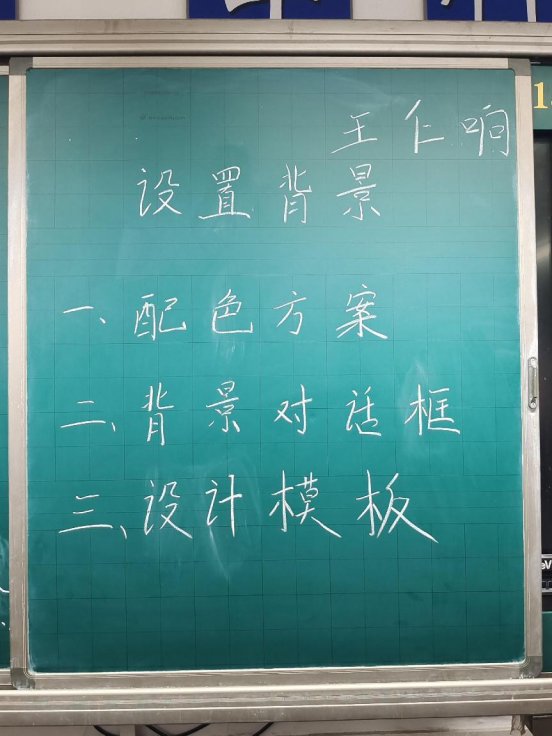 王仁响
设置背景
一、配色方案
二、背景对话框
三、设计模板